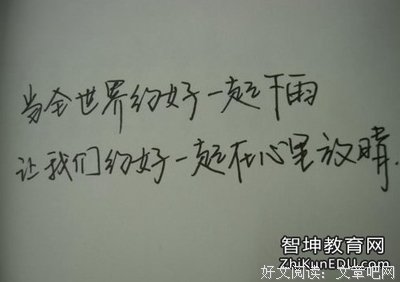 当全世界约好一起下雨
让我们约好一起在心里放晴.
智坤教育网
ZhiKunEDU.com
好文阅读：文章吧网